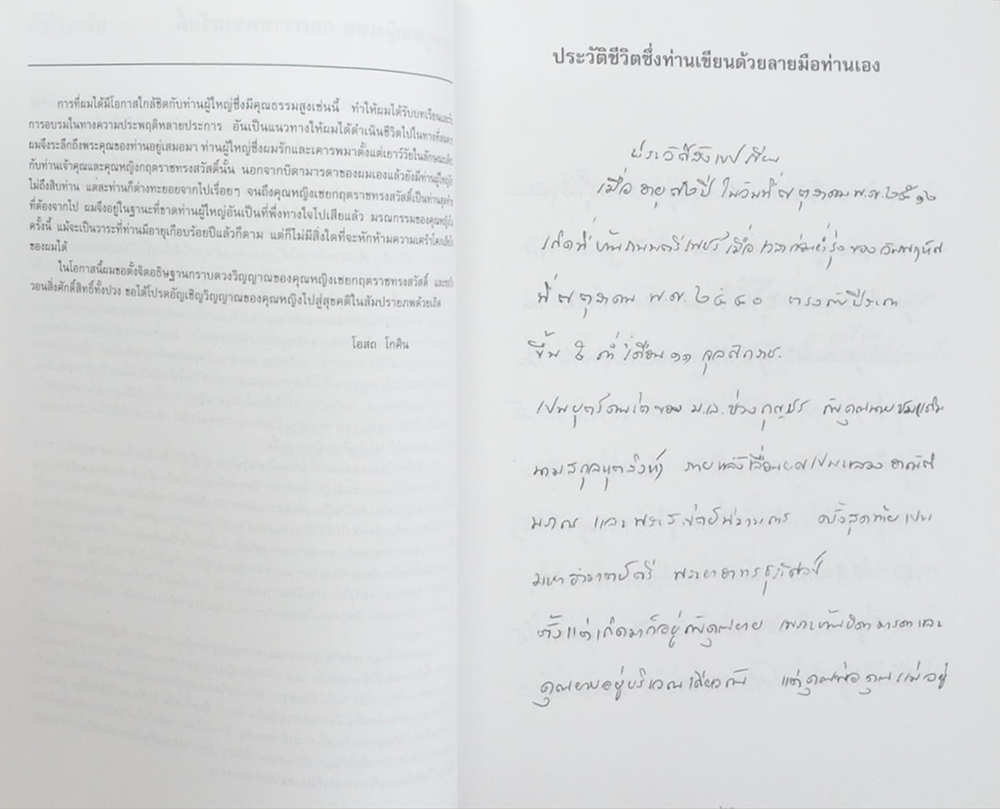 การที่ผมได้มีโอกาสใกล้ชิดกับท่านผู้ใหญ่ซึ่งมีคุณธรรมสูงเช่นนี้ ทำให้ผมได้รับบทเรียน
การอบรมในทางความประพฤติหลายประการ อันเป็นแนวทางให้ผมได้ดำเนินชีวิตไปในทาง
ผมจึงระลึกถึงพระคุณของท่านอยู่เสมอมา ท่านผู้ใหญ่ซึ่งผมรักและเคารพมาตั้งแต่เยาว์วัยในลักษณะ
กับท่านเจ้าคุณและคุณหญิงกฤตราชทรงสวัสดิ์นั้น นอกจากบิดามารดาของผมเองแล้วยังมีท่านผู้ใหญ่
ไม่ถึงสิบท่าน แต่ละท่านก็ต่างทะยอยจากไปเรื่อยๆ จนถึงคุณหญิงเชยกฤตราชทรงสวัสดิ์เป็นท่าน
ที่ต้องจากไป ผมจึงอยู่ในฐานะที่ขาดท่านผู้ใหญ่อันเป็นที่พึ่งทางใจไปเสียแล้ว มรณกรรมของคุณหญิง
ครั้งนี้ แม้จะเป็นวาระที่ท่านมีอายุเกือบร้อยปีแล้วก็ตาม แต่ก็ไม่มีสิ่งใดที่จะหักห้ามความเศร้าโศก
ของผมได้
ในโอกาสนี้ผมขอตั้งจิตอธิษฐานกราบดวงวิญญาณของคุณหญิงเชยกฤตราชทรงสวัสดิ์ และ
วอนสิ่งศักดิ์สิทธิ์ทั้งปวง ขอได้โปรดอัญเชิญวิญญาณของคุณหญิงไปสู่สุคติในสัมปรายภพด้วยเถิด
โอสถ โกศิน
ประวัติชีวิตซึ่งท่านเขียนด้วยลายมือท่านเอง
ประวัติสังเขป
เมื่ออายุ ๗๒ ปี ในวันที่ ๗ ตุลาคม พ.ศ. ๒๕๑๒
เกิดที่ เมื่อเวลาย่ำรุ่งของวันพฤหัส
ที่ ๗ ตุลาคม พ.ศ. ๒๔๔๐ ตรงกับปีระกา
ขึ้น ค่ำ เดือน ๑๑ จุลศักราช
เป็นบุตรีคนโตของ ม.ล. ช่วง กุญชร กับคุณนาย
นามสกุล ภายหลังเลื่อนยศเป็นหลวง
และพระ ครั้งสุดท้ายเป็น
มหาอำมาตย์ตรี พระยาอาทรธุรศิลป์
ตั้งแต่เกิดมาก็อยู่กับคุณยาย เพราะบ้านบิดามารดาและ
คุณยายอยู่บริเวณเดียวกัน แต่คุณพ่อคุณแม่อยู่